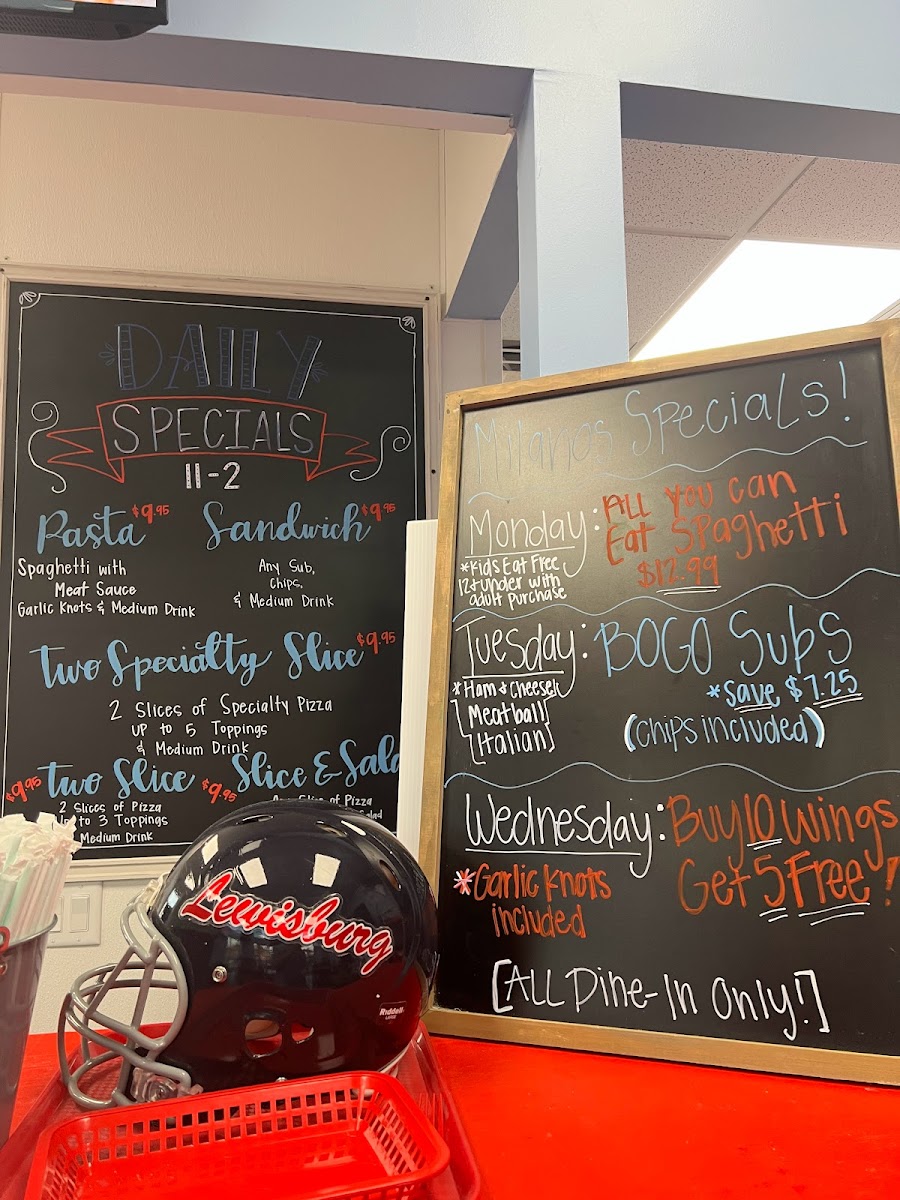 DAILY
SPECIALS
11-2
Pasta $9.95
Spaghetti with
Meat Sauce
Garlic Knots & Medium Drink
Sandwich $9.95
Any Sub,
Chips,
& Medium Drink
Two Specialty Slice $9.95
2 Slices of Specialty Pizza
up to 5 Toppings
& Medium Drink
$9.95 Two Slice
2 Slices of Pizza
Up to 3 Toppings
Medium Drink
$9.95 Slice & Sala
Any Slice of Pizza
Salad
Milanos Specials!
Monday: All you can
Eat Spaghetti
$12.99
*Kids Eat Free
12 & under with
adult purchase
Tuesday: BOGO Subs
*Save $7.25
(Chips included)
*Ham & Cheese
[Meatball]
[Italian]
Wednesday: Buy 10 Wings
Get 5 Free!
*Garlic Knots
included
[ALL Dine-In Only!]
Lewisburg
Riddell
LARGE